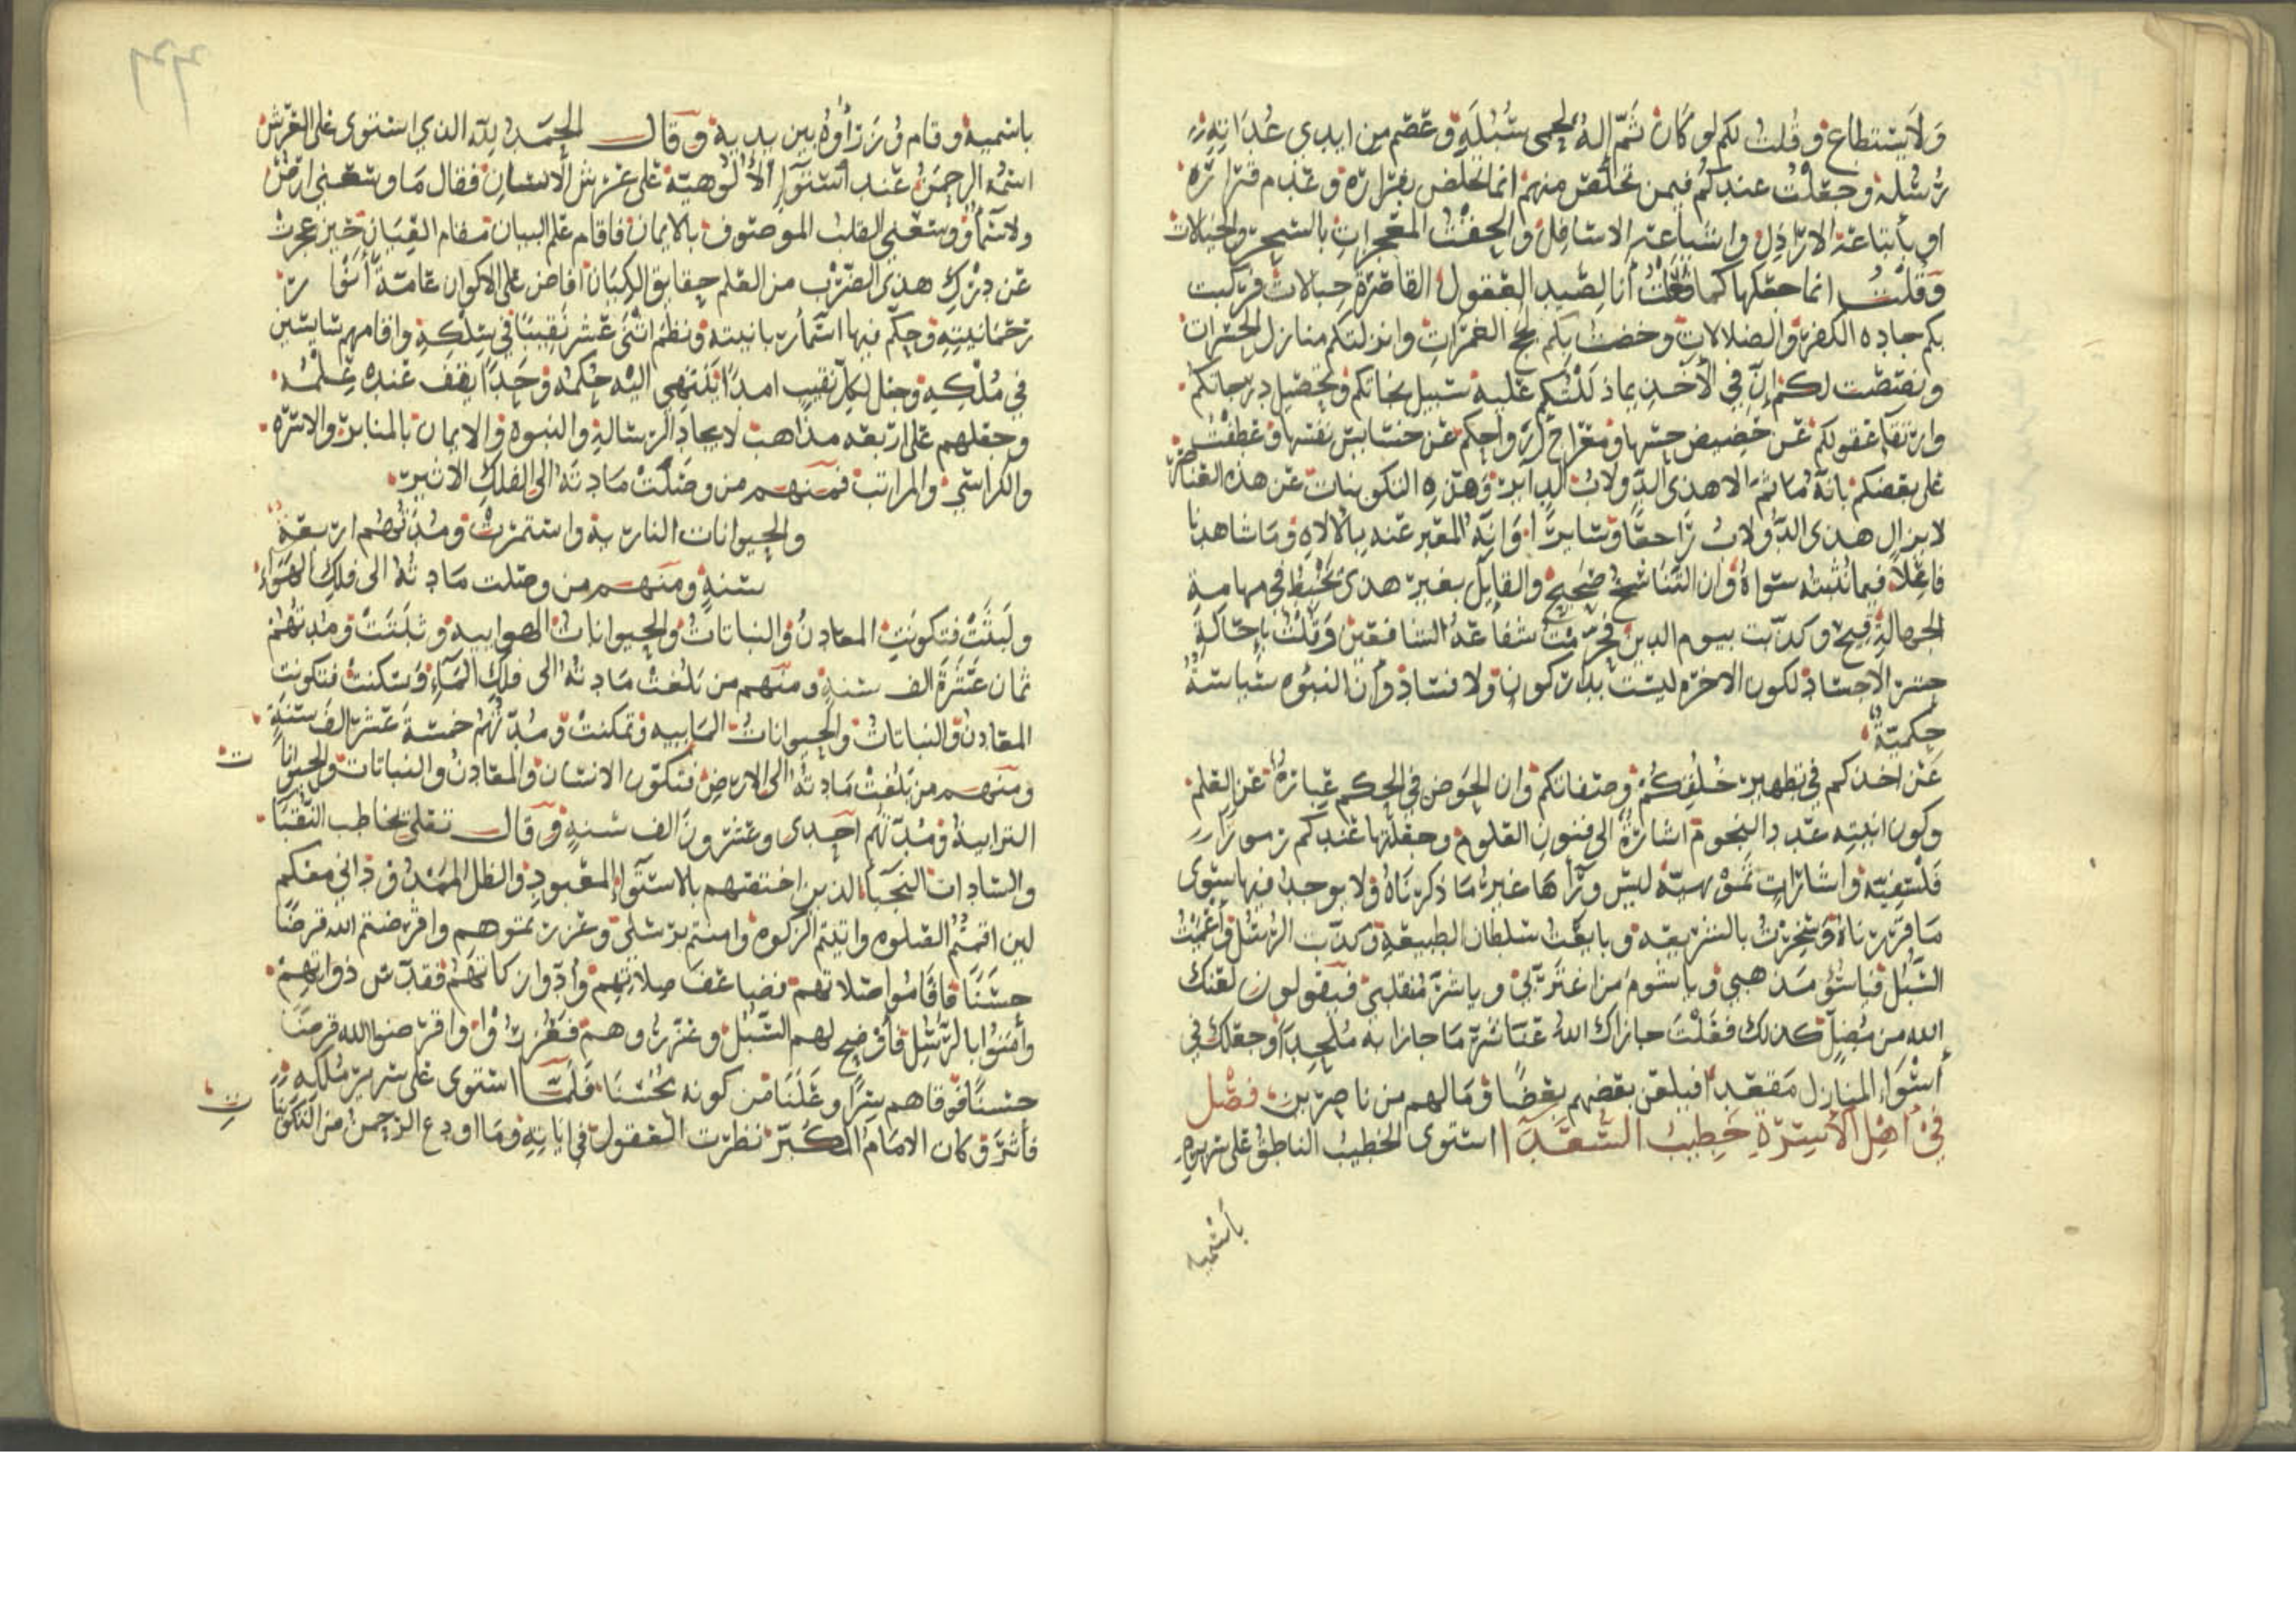 ولا يستطاع وقلت لكم لو كان ثم اله لحمى سبله وعصم من ايدي عداته
رسله وجعلت عندكم فيمن تخلص منهم انما تخلص بفراره وعدم قراره
او باتباعه الاراذل واشياعه الاسافل والحقت المعجزات بالسحر والخيالات
وقلت انما جعلها كما جعلت أنا لصيد العقول القاصرة حبالات فركبت
بكم جاده الكفر والضلالات وخضت بكم لجج الغمرات وانزلتكم منازل الحسرات
ونصصت لكم إن في الأخذ بما ذللتكم عليه سبيل نجاتكم وتحصيل درجاتكم
وارتقا عقولكم عن حضيض حسها ومعراج ارواحكم عن خسايس نفسها وعطفت
على بعضكم بانه ما ثم الا هذى الدولاب الداير وهذه التكوينات عن هذه العناصر
لا يزال هذى الدولاب راجعا وسايرا وانه المعبر عنه بالالاه وما شاهدنا
فاعلا فيما نثبته سواه وان التناسخ صحيح والقايل بغير هذى يتخبط في مهامه
الجهالة فيح وكذبت بيوم الدين فحرمت شفاعه الشافعين وقلت بإحالة
حشر الاجساد لكون الاخره ليست بدار كون ولا فساد وأن النبوه سياسة
حكمية
عن اخذكم في تطهير خلقكم وصفاتكم وان الحوض في الحكم عبارة عن العلم
وكون انيته عدد النجوم اشارة الى فنون العلوم وجعلتها عندكم رموزا
فلسفية واشارات نموهية ليس وراها غير ما ذكرناه ولا يوجد فيها سوى
ما قررناه وسخرت بالشريعه وبايعت سلطان الطبيعة وكذبت الرسل واعميت
السبل فياسوء مذهبي ويا شوم من اغتر بي ويا شر منقلبي فيقولون لعنك
الله من مضل كذلك فعلت جازاك الله عنا شر ما جازا به ملحدا وجعلك في
أسوء المنازل مقعدا فيلعن بعضهم بعضا وما لهم من ناصرين فصل
في اهل الأسرة خطيب السعدا استوى الخطيب الناطق على سريره
باسميه
باسميه وقام وزرأوه بين يديه وقال الحمد لله الذي استوى على العرش
اسمه الرحمن عند استواء الألوهية على عرش الانسان فقال ما وسعني ارض
ولا سما ووسعني القلب الموصوف بالايمان فاقام علم البيان مقام العيان حين عجزت
عن درك هذى الضرب من العلم حقايق الكيان افاض على الاكوان عامة أنوار
رحمانيته وحكم فيها اسمآء ربانيته ونظم اثنى عشر نقيبا في سلكه واقامهم سايسين
في ملكه وجعل لكل نقيب امدا ينتهي اليه حكمه وحدا يقف عنده علمه
وجعلهم على اربعه مذاهب لايجاد الرسالة والنبوه والايمان بالمنابر والاسره
والكراسي والمراتب فمنهم من وصلت مادته الى الفلك الاثير
والحيوانات النارية واستمرت ومدتهم اربعة
سنة ومنهم من وصلت مادته الى فلك الهواء
ولبثت فتكونت المعادن والنباتات والحيوانات الهوايية وثلثت ومدتهم
ثمان عشرة الف سنة ومنهم من بلغت مادته الى فلك الماء وسكنت فتكونت
المعادن والنباتات والحيوانات المايية وتمكنت ومدتهم خمسة عشر الف سنة
ومنهم من بلغت مادته الى الارض فتكون الانسان والمعادن والنباتات والحيوانات
الترابية ومدتهم احدى وعشرون الف سنة وقال تعلى يخاطب النقبا
والسادات النجبا الذين اختصهم بالاستواء المعبود والظل الممدود اني معكم
لين اقمتم الصلوه واتيتم الزكوه وامنتم برسلي وعزرتموهم واقرضتم الله قرضا
حسنا فاقاموا صلاتهم فضاعف صلاتهم وأدوا زكاتهم فقدس ذواتهم
وأمنوا بالرسل فأوضح لهم السبل وعزروهم فعززوا واقرضوا الله قرضا
حسنا فوقاهم سرا وعلنا من كونه محسنا فلما استوى على سرير ملكه
فأشرق كان الامام المكبر نظرت العقول في اياته وما اودع الرحمن من التكوينات